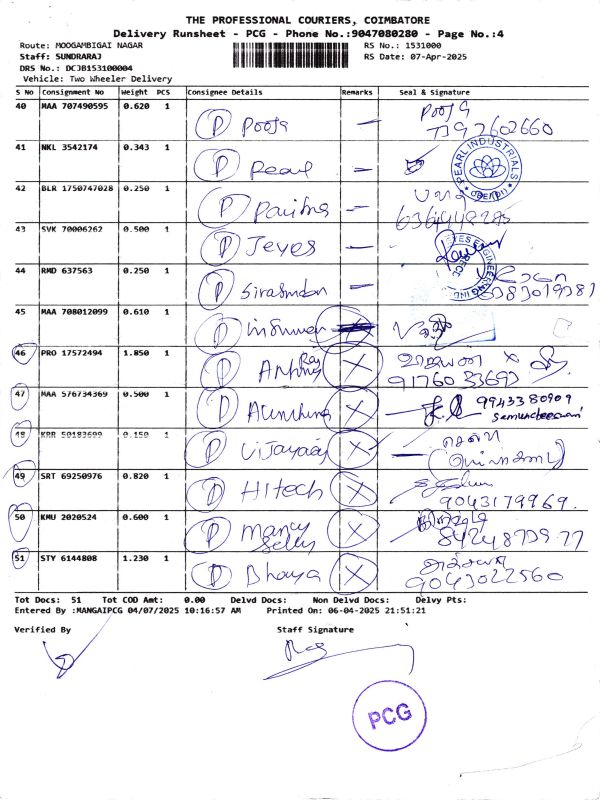 THE PROFESSIONAL COURIERS, COIMBATORE
Delivery Runsheet - PCG - Phone No.:9047080280 - Page No.:4
Route: MOOGAMBIGAI NAGAR RS No.: 1531000
Staff: SUNDRARAJ RS Date: 07-Apr-2025
DRS No.: DCJB153100004
Vehicle: Two Wheeler Delivery
S No Consignment No Weight PCS Consignee Details Remarks Seal & Signature
40 MAA 707490595 0.620 1 P Pooja — Pooja
7397602660
41 NKL 3542174 0.343 1 P Pearl — PEARL INDUSTRIALS
42 BLR 1750747028 0.250 1 P —
43 SVK 70006262 0.500 1 P Jeyes —
44 RMD 637563 0.250 1 P —
6383019381
45 MAA 708012099 0.610 1 P X
46 PRO 17572494 1.850 1 P Antony Raj X
91760 33693
47 MAA 576734369 0.500 1 P X 9943380909
48 KRR 50183699 0.150 1 P Vijayaraj X
49 SRT 69250976 0.820 1 P Hitech X
9043179969
50 KMU 2020524 0.600 1 P Mancy Selly X
84248739 77
51 STY 6144808 1.230 1 P Bhaya X
9043022560
Tot Docs: 51 Tot COD Amt: 0.00 Delvd Docs: Non Delvd Docs: Delvy Pts:
Entered By :MANGAIPCG 04/07/2025 10:16:57 AM Printed On: 06-04-2025 21:51:21
Verified By Staff Signature
PCG